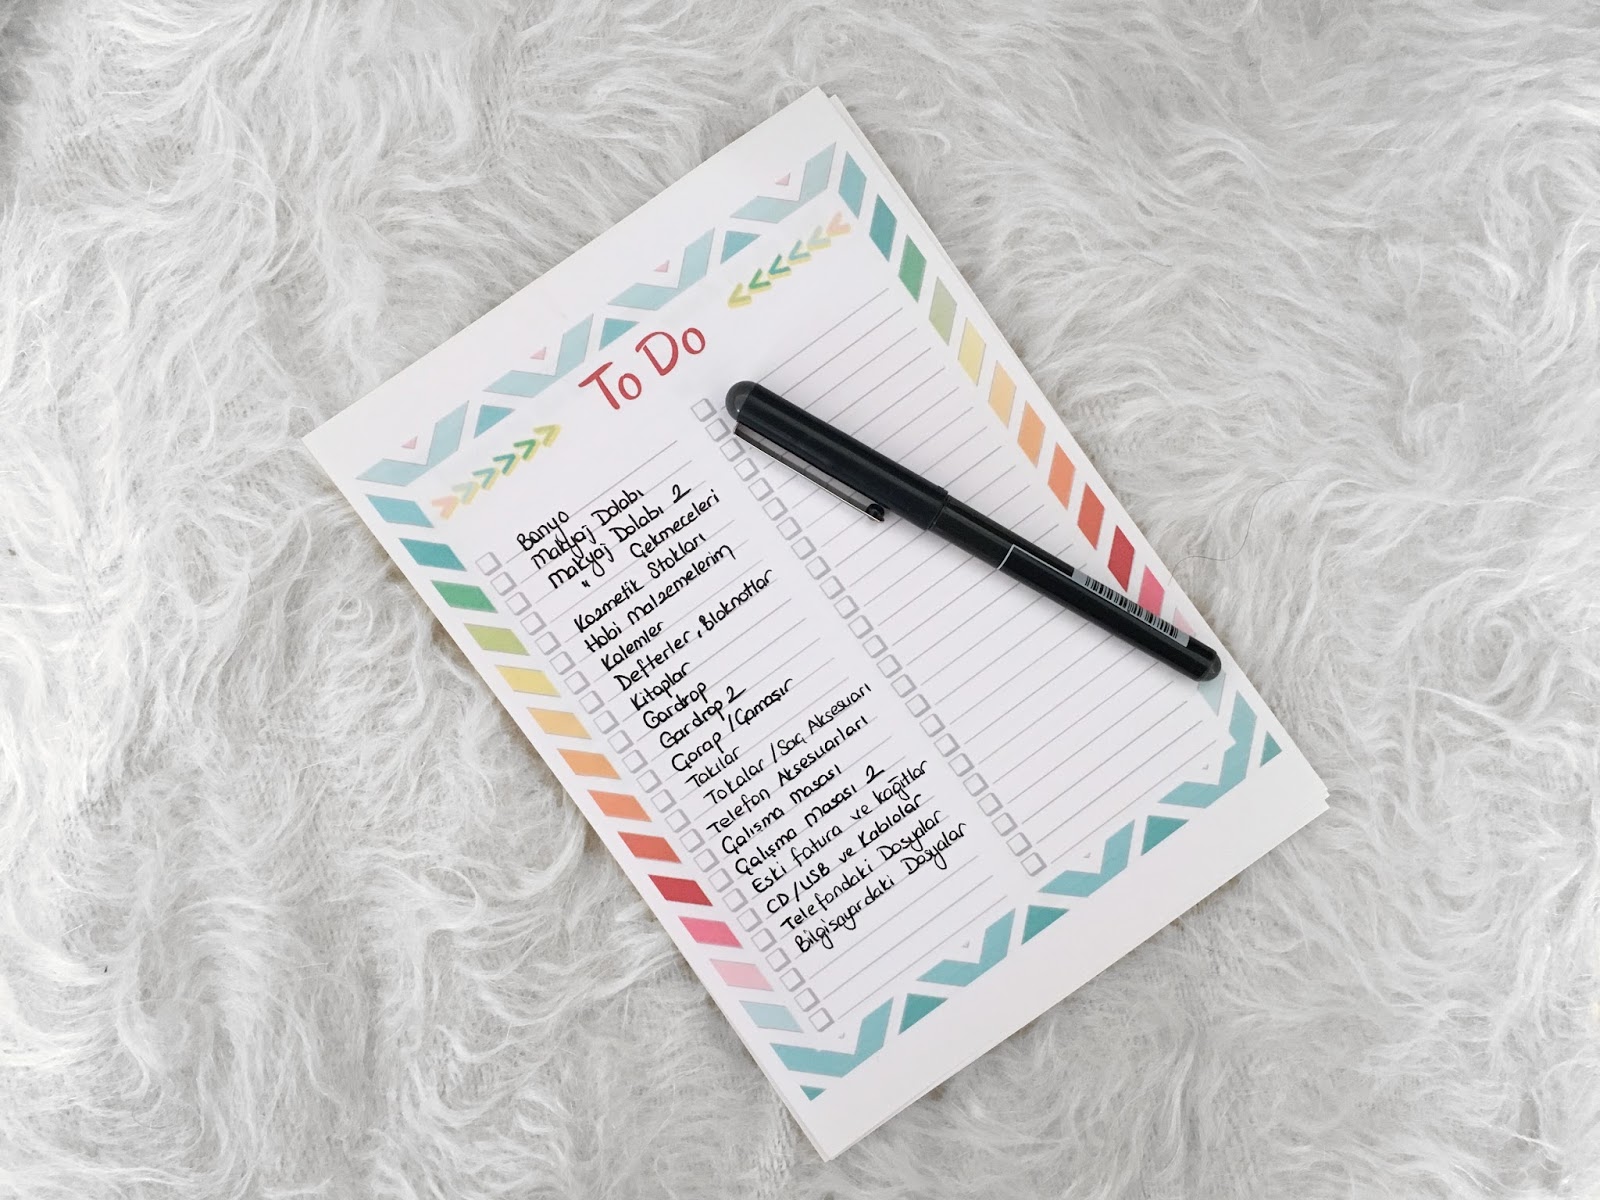 To Do
Banyo
Makyaj Dolabı
Makyaj Dolabı 2
" Çekmeceleri
Kozmetik Stokları
Hobi Malzemelerim
Kalemler
Defterler, Bloknotlar
Kitaplar
Gardrop
Gardrop 2
Çorap / Çamaşır
Takılar
Tokalar / Saç Aksesuarı
Telefon Aksesuarları
Çalışma Masası
Çalışma Masası 2
Eski fatura ve kağıtlar
CD/USB ve Kablolar
Telefondaki Dosyalar
Bilgisayardaki Dosyalar